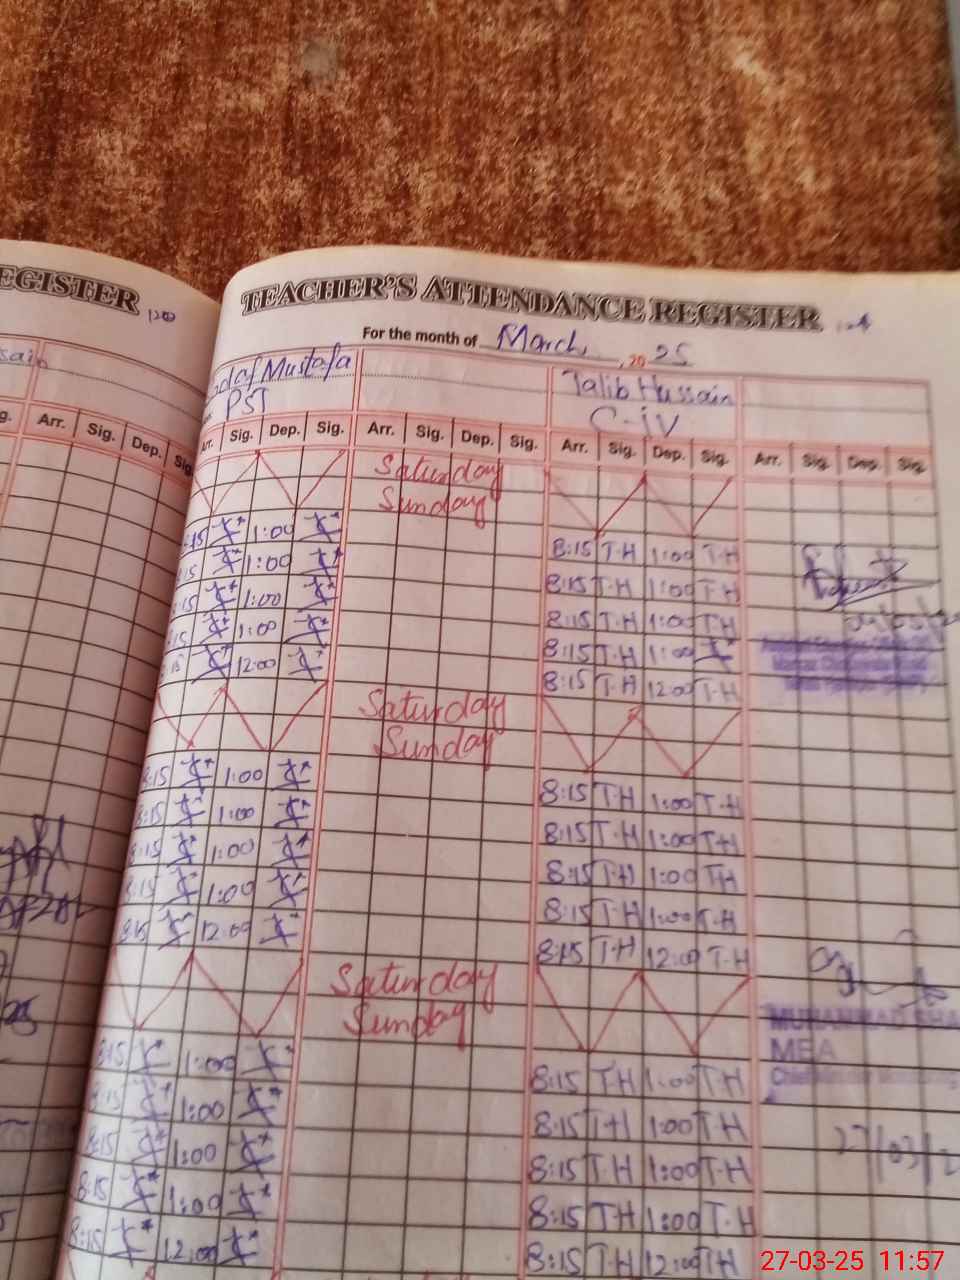 EGISTER
TEACHER'S ATTENDANCE REGISTER
For the month of March, 20 25
Mustafa Talib Hussain
PST C-iV
Arr. Sig. Dep. Sig. Arr. Sig. Dep. Sig. Arr. Sig. Dep. Sig. Arr. Sig. Dep. Sig.
Saturday
Sunday
8:15 1:00 8:15 T-H 1:00 T-H
15 1:00 8:15 T-H 1:00 T-H
15 1:00 8:15 T-H 1:00 T-H
15 1:00 8:15 T-H 1:00
15 12:00 8:15 T-H 12:00 T-H
Saturday
Sunday
8:15 1:00 8:15 T-H 1:00 T-H
8:15 1:00 8:15 T-H 1:00 T-H
8:15 1:00 8:15 T-H 1:00 T-H
8:15 1:00 8:15 T-H 1:00 T-H
8:15 12:00 8:15 T-H 12:00 T-H
Saturday
Sunday
MUHAMMAD
MEA
8:15 1:00 8:15 T-H 1:00 T-H
8:15 1:00 8:15 T-H 1:00 T-H
8:15 1:00 8:15 T-H 1:00 T-H
27/03/2
8:15 1:00 8:15 T-H 1:00 T-H
8:15 12:00 8:15 T-H 12:00 T-H
27-03-25 11:57